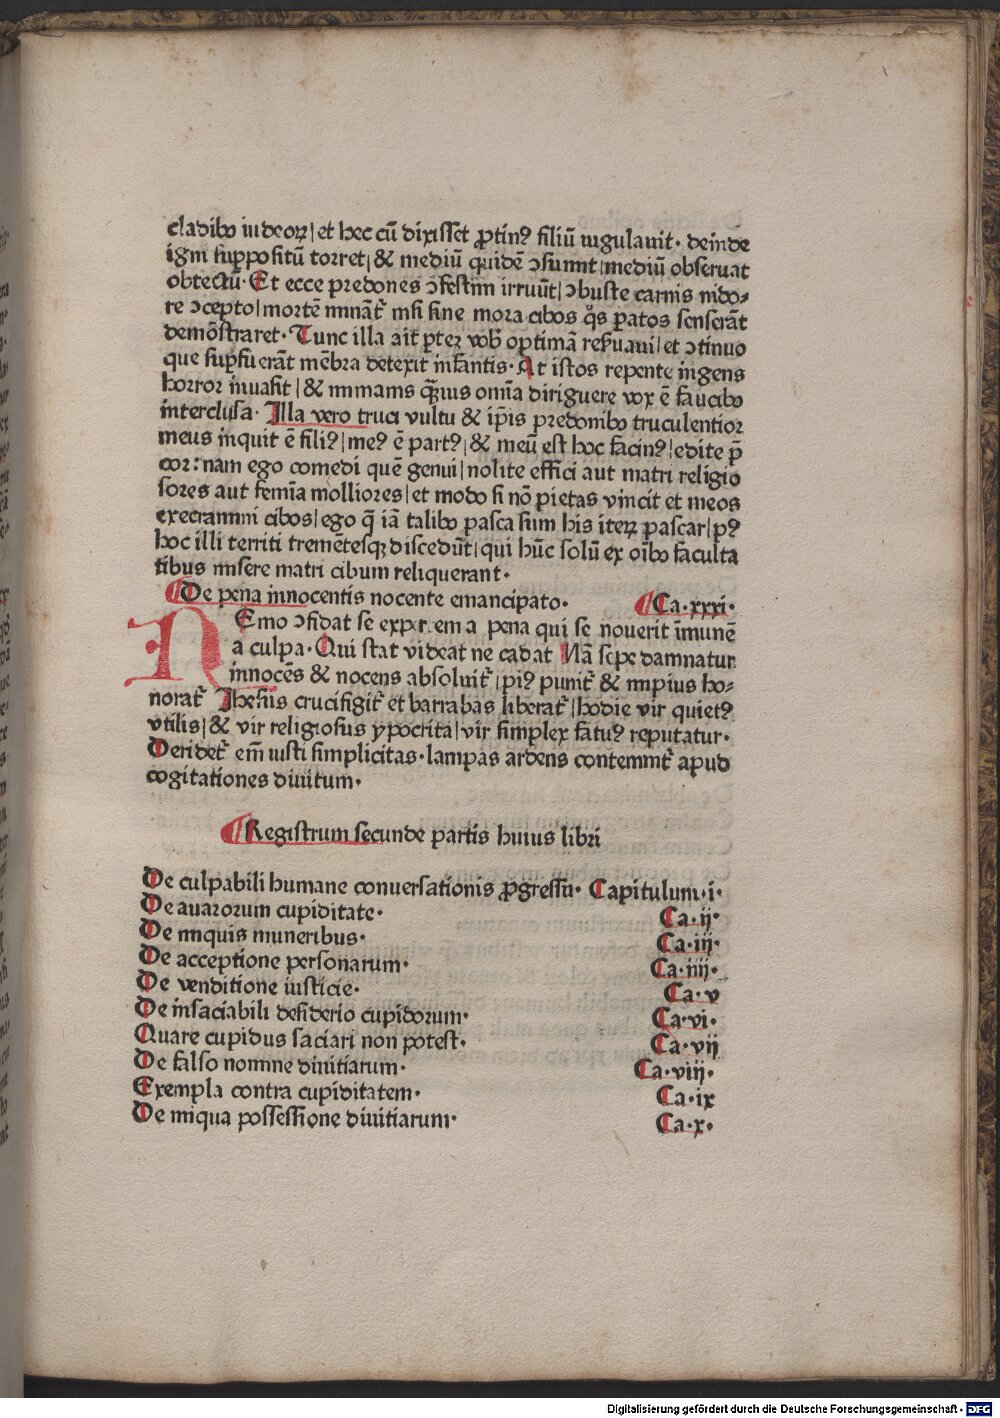 cladibꝰ iudeoꝝ|et hec cū dixisset ꝓtinꝰ filiū iugulauit· deinde
igni suppositū torret|& mediū quidē ↄsumit|mediū obseruat
obtectū· Et ecce predones ↄfestim irruūt|ↄbuste carnis nido⸗
re ↄcepto|mortē minātᷣ nisi sine mora cibos q̄s patos senserāt
demōstraret· Tunc illa ait pteꝝ vob̄ optimā reẜuaui|et ↄtinuo
que supfuerāt mēbra detexit infantis· At istos repente ingens
horror inuasit|& nimamis q̄uis omīa diriguere vox ē faucibꝰ
interclusa· Illa vero truci vultu & ip̄is predonibꝰ truculentior
meus inquit ē filiꝰ|meꝰ ē partꝰ|& meū est hoc facinꝰ|edite p̄
cor: nam ego comedi quē genui|nolite effici aut matri religio
sores aut femīa molliores|et modo si nō pietas vincit et meos
execrammi cibos|ego q̄ iā talibꝰ pasca sum his iteꝝ pascar|pꝰ
hoc illi territi tremētesqꝫ discedūt|qui hūc solū ex oībꝰ faculta
tibus misere matri cibum reliquerant·
De pena innocentis nocente emancipato· Ca·xxxi·
NEmo ↄfidat se expertem a pena qui se nouerit īmunē
a culpa· Qui stat videat ne cadat Nā sepe damnatur
innocēs & nocens absoluitᷣ|piꝰ punitᷣ & impius ho⸗
noratᷣ Jhesus crucifigitᷣ et barrabas liberatᷣ|hodie vir quietꝰ
vtilis|& vir religiosus ypocrita|vir simplex fatuꝰ reputatur·
Deridetᷣ em̄ iusti simplicitas·lampas ardens contemnitᷣ apud
cogitationes diuitum·
Registrum secunde partis huius libri
De culpabili humane conuersationis ꝓgressu· Capitulum·i·
De auarorum cupiditate· Ca·ii·
De iniquis muneribus· Ca·iii·
De acceptione personarum· Ca·iiii·
De venditione iusticie· Ca·v
De insaciabili desiderio cupidorum· Ca·vi·
Quare cupidus saciari non potest· Ca·vii
De falso nomine diuitiarum· Ca·viii·
Exempla contra cupiditatem· Ca·ix
De iniqua possessione diuitiarum· Ca·x·
Digitalisierung gefördert durch die Deutsche Forschungsgemeinschaft - DFG